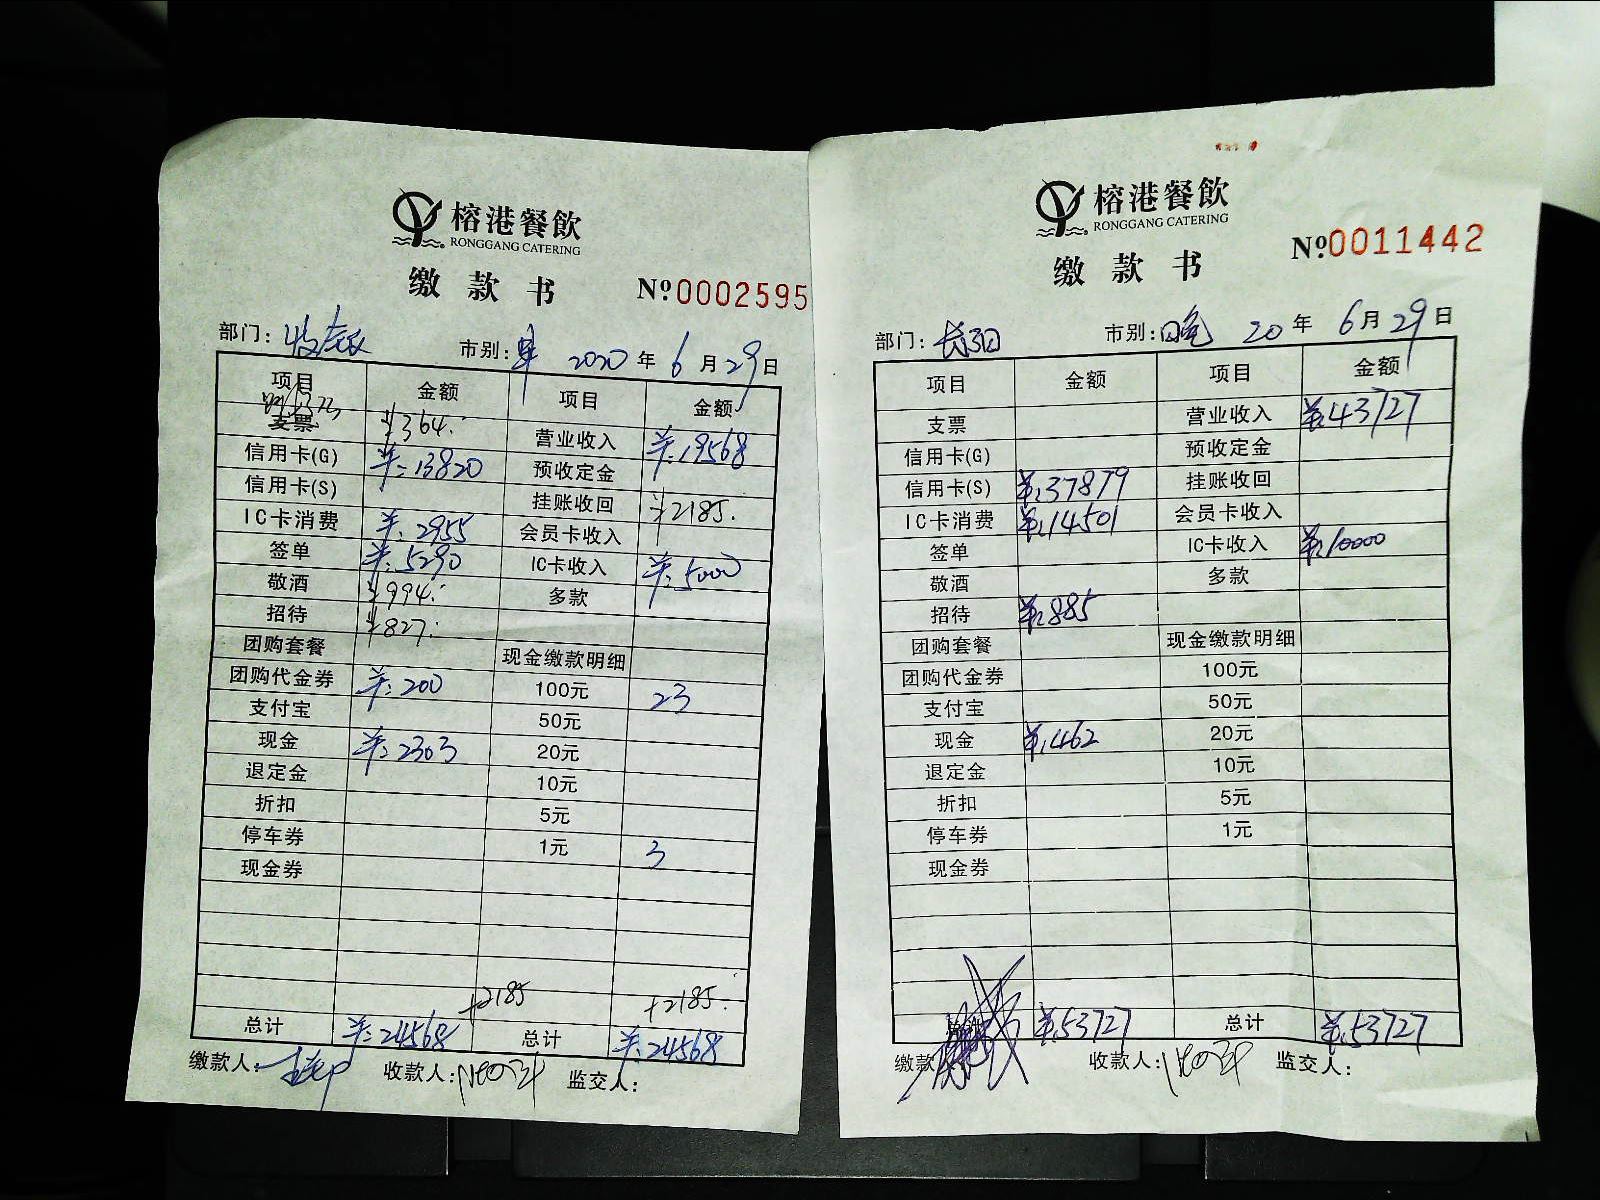 榕港餐飲
RONGGANG CATERING
缴款书
№0002595
部门: 收银 市别: 2020年6月29日
项目 金额 项目 金额
支票 ¥364. 营业收入 ¥:19568
信用卡(G) ¥:13820 预收定金
信用卡(S) 挂账收回 ¥2185.
IC卡消费 ¥:2955 会员卡收入
签单 ¥:5290 IC卡收入 ¥:5000
敬酒 ¥994. 多款
招待 ¥827.
团购套餐 现金缴款明细
团购代金券 ¥:200 100元 23
支付宝 50元
现金 ¥:2303 20元
退定金 10元
折扣 5元
停车券 1元 3
现金券
+2185 +2185.
总计 ¥:24568 总计 ¥:24568
缴款人: 收款人: 监交人:
榕港餐飲
RONGGANG CATERING
缴款书
№0011442
部门: 市别:晚 20年6月29日
项目 金额 项目 金额
支票 营业收入 ¥:43727
信用卡(G) 预收定金
信用卡(S) ¥:37879 挂账收回
IC卡消费 ¥:14501 会员卡收入
签单 IC卡收入 ¥:10000
敬酒 多款
招待 ¥:885
团购套餐 现金缴款明细
团购代金券 100元
支付宝 50元
现金 ¥:462 20元
退定金 10元
折扣 5元
停车券 1元
现金券
¥:53727 总计 ¥:53727
缴款 收款人: 监交人: